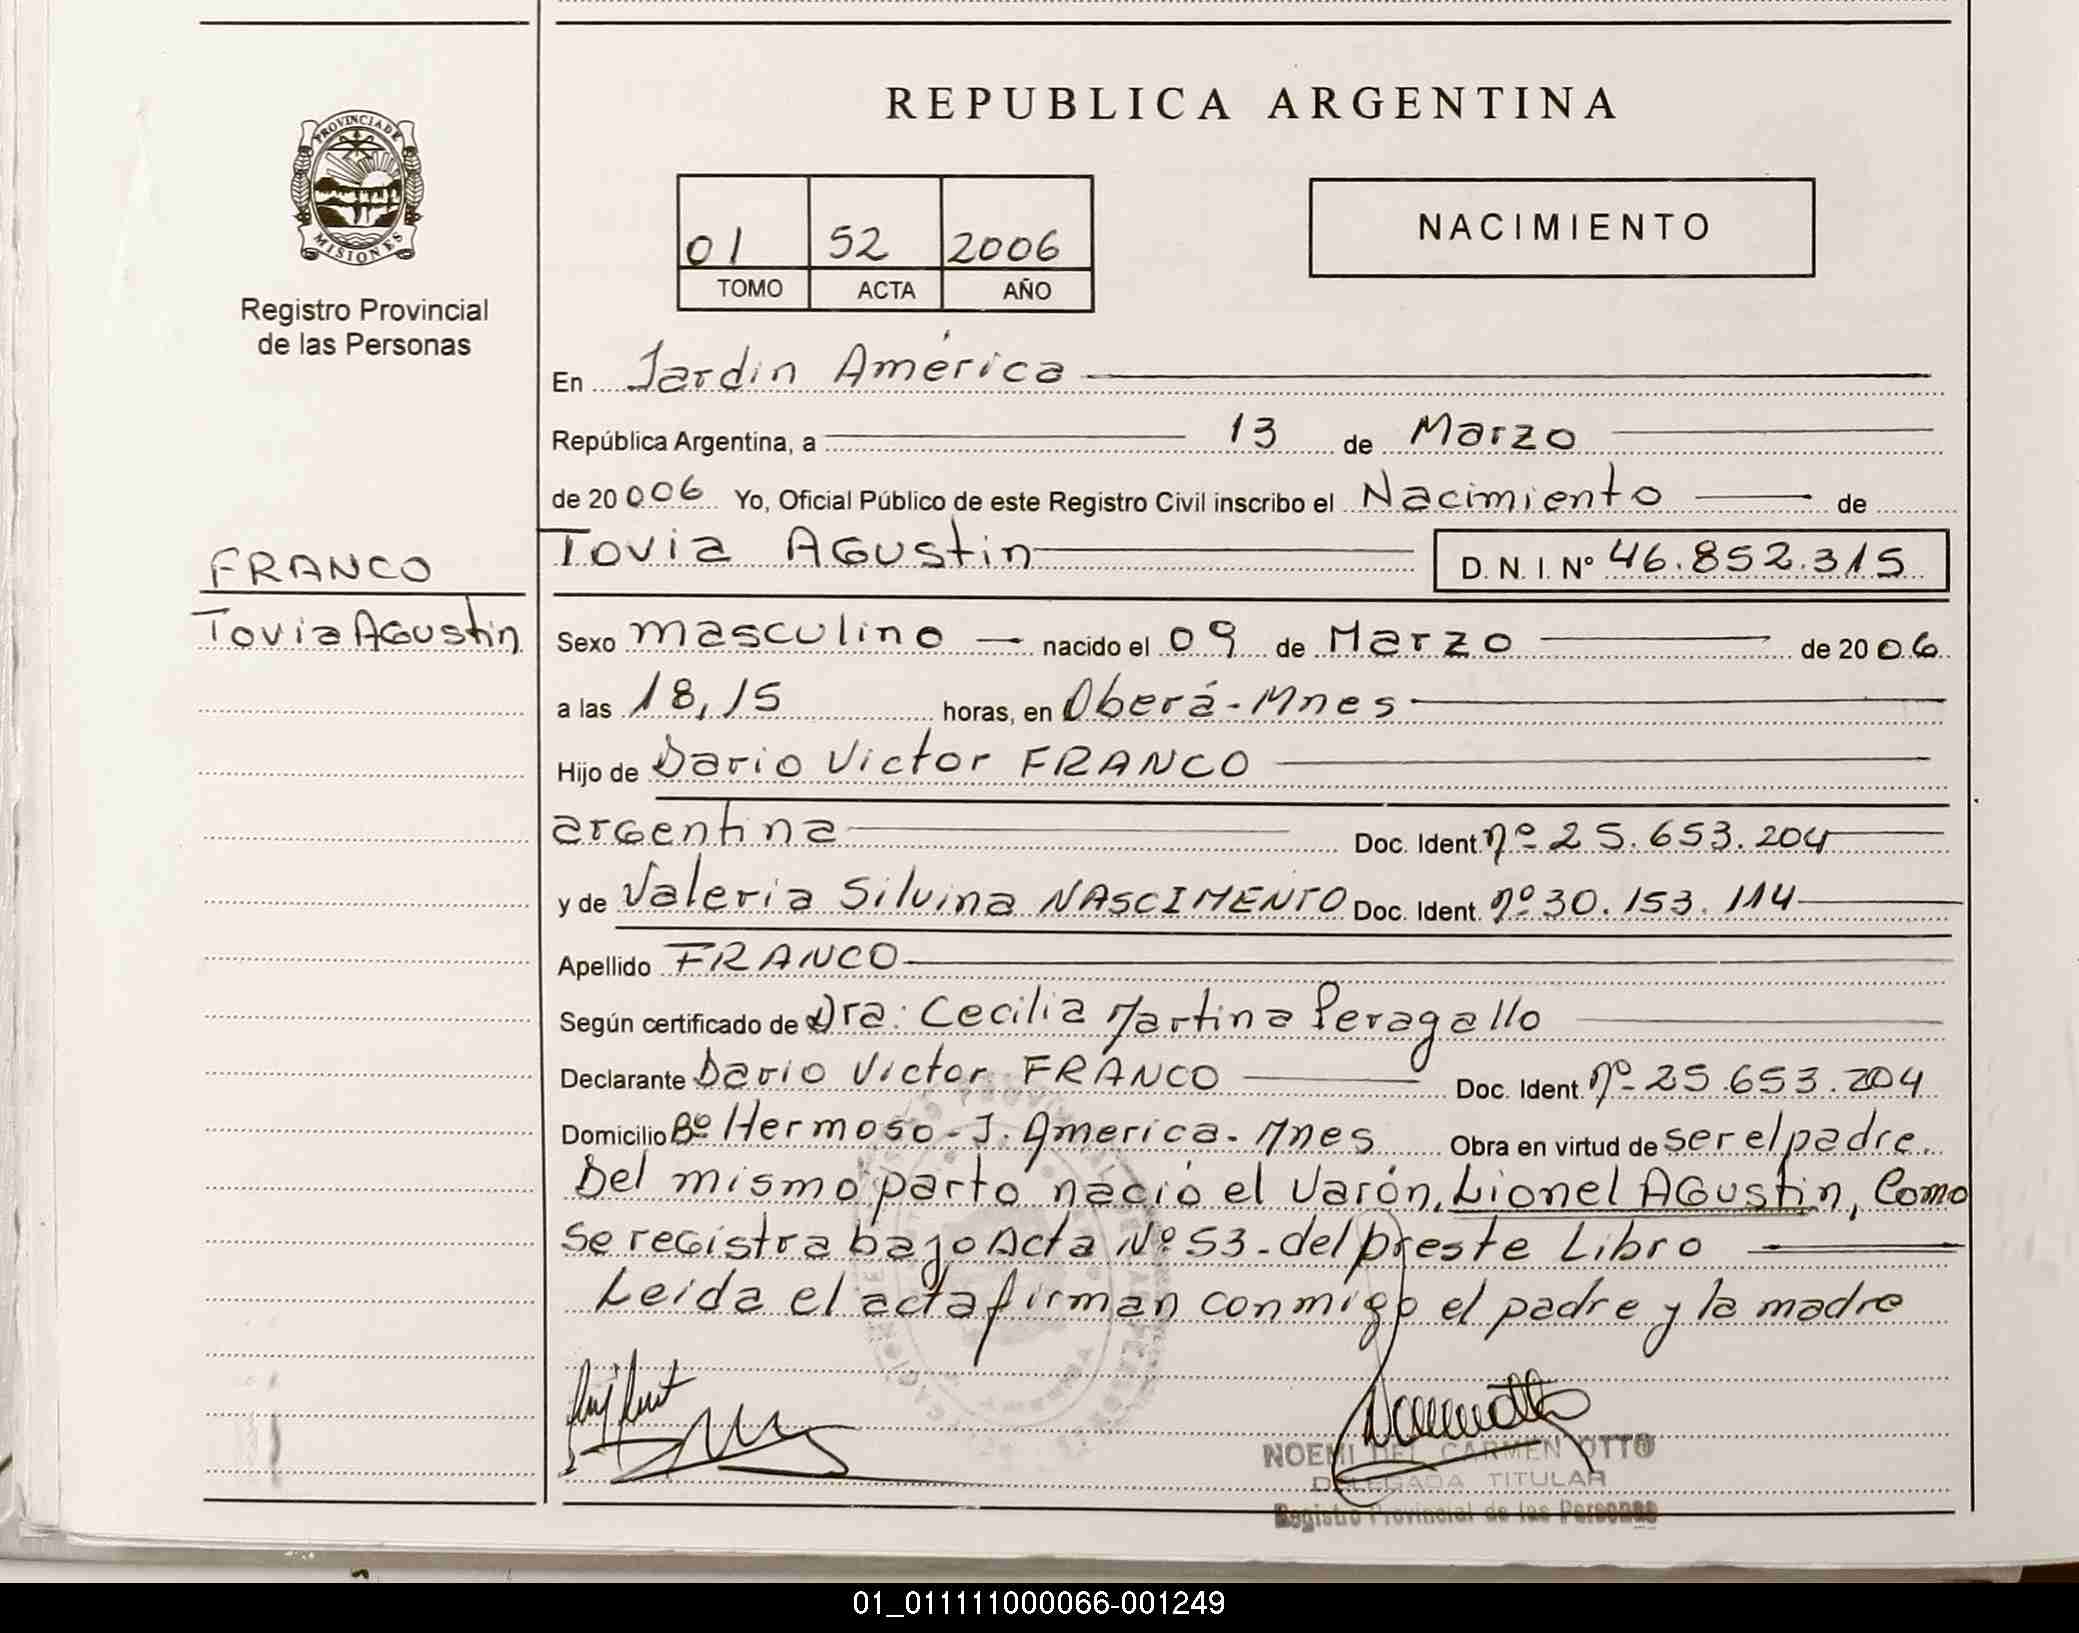 REPUBLICA ARGENTINA
PROVINCIA DE
MISIONES
Registro Provincial
de las Personas
01 52 2006
TOMO ACTA AÑO
NACIMIENTO
En Jardin América
República Argentina, a 13 de Marzo
de 20 006 Yo, Oficial Público de este Registro Civil inscribo el Nacimiento de
FRANCO
Tovia Agustin
Tovia Agustin D. N. I. Nº 46.852.315
Sexo masculino nacido el 09 de Marzo de 20 06
a las 18,15 horas, en Oberá-Mnes
Hijo de Dario Victor FRANCO
argentina Doc. Ident. nº 25.653.204
y de Valeria Silvina NASCIMENTO Doc. Ident. nº 30.153.114
Apellido FRANCO
Según certificado de Dra: Cecilia Martina Peragallo
Declarante Dario Victor FRANCO Doc. Ident. nº 25.653.204
Domicilio Bº Hermoso-J. America-Mnes Obra en virtud de ser el padre.
Del mismo parto nació el varón, Lionel Agustin, Como
se registra bajo Acta Nº 53-del preste Libro
Leida el acta firman conmigo el padre y la madre
NOEMI DEL CARMEN OTTO
DELEGADA TITULAR
Registro Provincial de las Personas
01_011111000066-001249